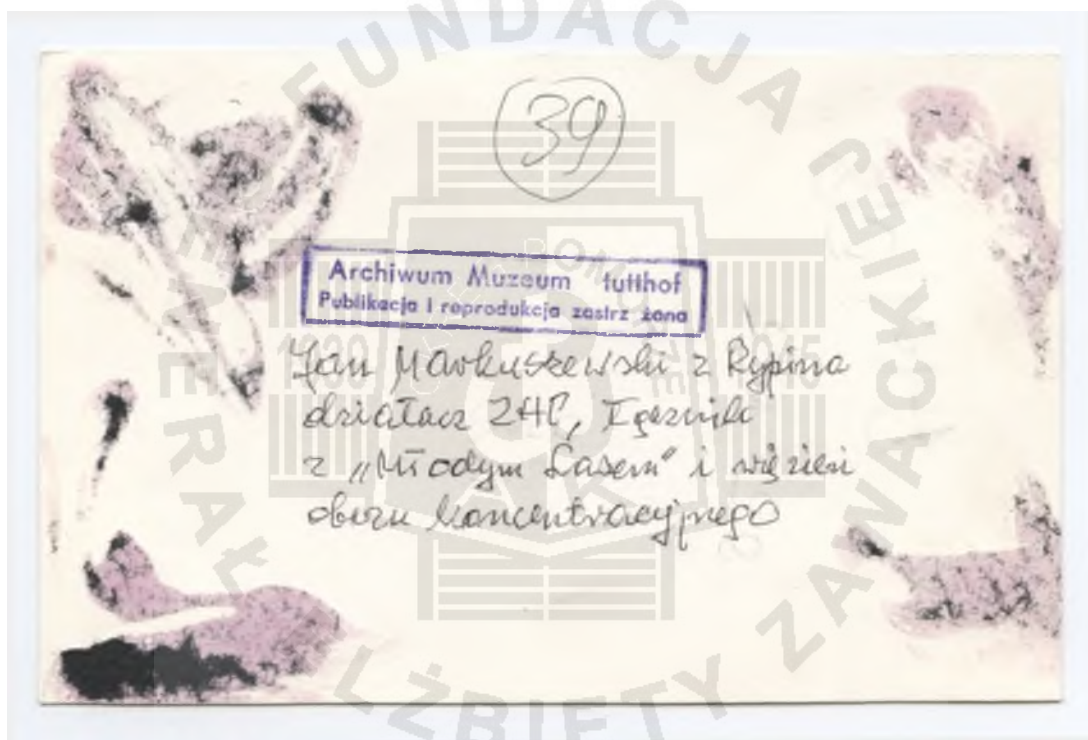 39
Archiwum Muzeum tutthof
Publikacja i reprodukcja zastrz żona
Jan Markuszewski z Rypina
działacz ZHP, łącznik
z "Młodym Lasem" i więzień
obozu koncentracyjnego
FUNDACJA
GENERAŁ ELŻBIETY ZAWACKIEJ
POMORZE
1939 1945
AK